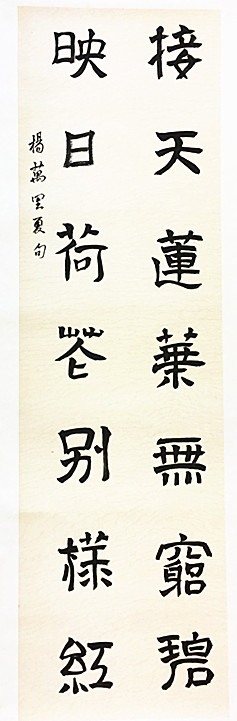 接天蓮葉無窮碧
映日荷花别樣紅
楊萬里夏句